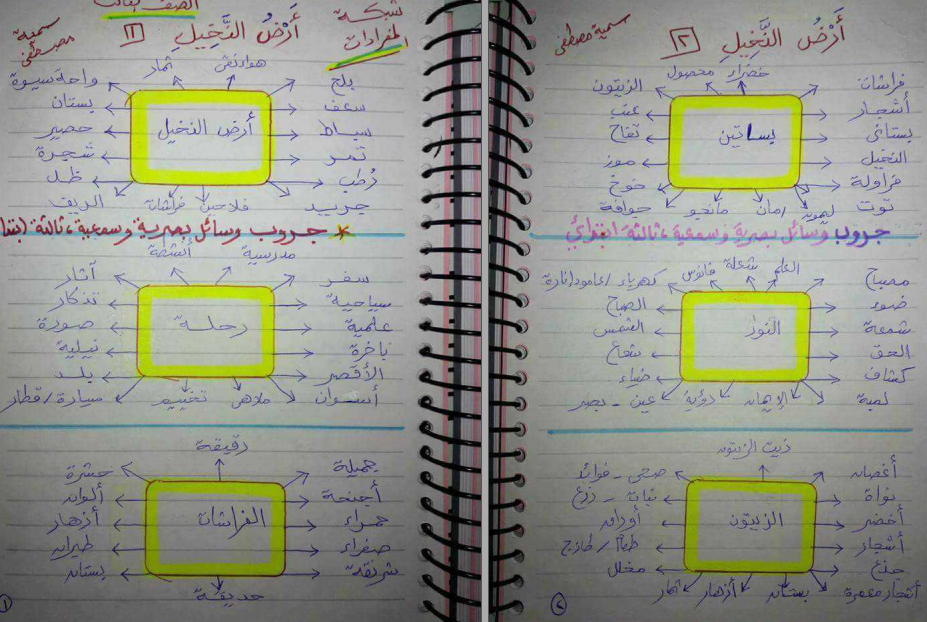 الصف الثالث
شبكة
المفردات
أَرْضُ النَّخِيلِ ١
سمية
مصطفى
بلح هواء نقي ثمار واحة سيوة
سعف بستان
سباط أرض النخيل حصير
تمر شجرة
رُطب ظل
جريد فلاحين فراشات الريف
* جروب وسائل بصرية وسمعية، ثالثة ابتدا
مدرسية أنشطة
سفر آثار
سياحية تذكار
علمية رحلة صورة
باخرة نيلية
الأقصر بلد
أسوان ملاهي تخييم سيارة/قطار
رقيقة
جميلة حشرة
أجنحة ألوان
حمراء الفراشات أزهار
صفراء طيران
شرنقة بستان
حديقة
١
أَرْضُ النَّخِيلِ ٢
سمية مصطفى
فراشات خضراء محصول الزيتون
أشجار عنب
بستاني بساتين تفاح
النخيل موز
فراولة خوخ
توت ليمون رمان مانجو جوافة
جروب وسائل بصرية وسمعية، ثالثة ابتدائي
مصباح العلم شعلة فانوس كهرباء/عامود إنارة
ضوء الصباح
شمعة النور الشمس
الحق شعاع
كشاف ضياء
لمبة الإيمان رؤية عين - بصر
زيت الزيتون
أغصان صحي - فوائد
نواة نبات - زرع
أخضر الزيتون أوراق
أشجار طعام/طازج
مخلل
أشجار معمرة بستان أزهار ثمار
٢